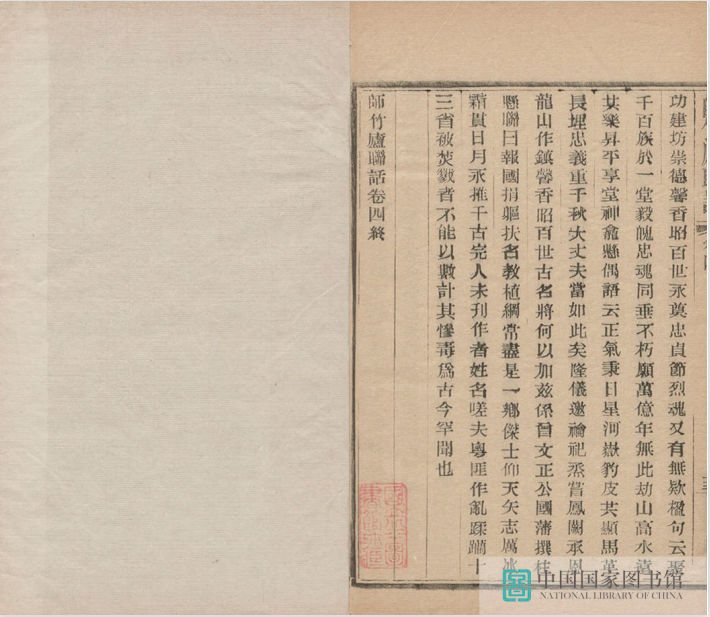 功建坊崇德馨香昭百世永奠忠貞節烈魂又有無欵楹句云聚
千百族於一堂毅魄忠魂同垂不朽願萬億年無此劫山高水遠
共樂昇平享堂神龕懸偶語云正氣秉日星河嶽豹皮共顯馬革
長埋忠義重千秋大丈夫當如此矣隆儀邀禴祀烝嘗鳳闕承恩
龍山作鎮馨香昭百世古名將何以加茲係曾文正公國藩撰桂
懸聯曰報國捐軀扶名教植綱常盡是一鄉傑士仰天矢志厲冰
霜貫日月永推千古完人未刊作者姓名嗟夫粵匪作亂蹂躪十
三省被焚戮者不能以數計其慘毒爲古今罕聞也
師竹廬聯話卷四終
中国国家图书馆
NATIONAL LIBRARY OF CHINA